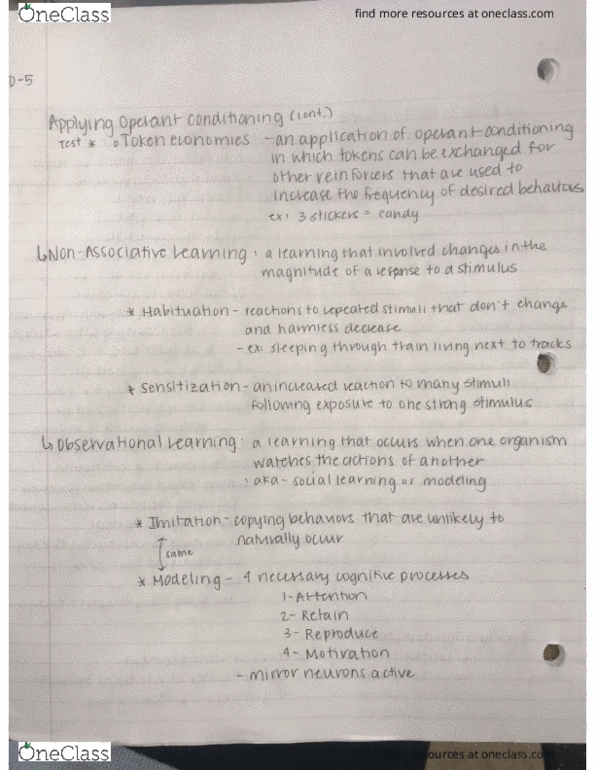 OneClass
find more resources at oneclass.com
D-5
Applying Operant conditioning (cont.)
Test * o Token economies - an application of operant conditioning
in which tokens can be exchanged for
other reinforcers that are used to
increase the frequency of desired behaviors
ex: 3 stickers = candy
↳ Non-Associative Learning : a learning that involved changes in the
magnitude of a response to a stimulus
* Habituation - reactions to repeated stimuli that don't change
and harmless decrease
- ex: sleeping through train living next to tracks
* Sensitization - an increased reaction to many stimuli
following exposure to one strong stimulus
↳ Observational Learning : a learning that occurs when one organism
watches the actions of another
: aka - social learning or modeling
* Imitation - copying behaviors that are unlikely to
naturally occur
same
* Modeling - 4 necessary cognitive processes
1 - Attention
2 - Retain
3 - Reproduce
4 - Motivation
- mirror neurons active
OneClass
find more resources at oneclass.com